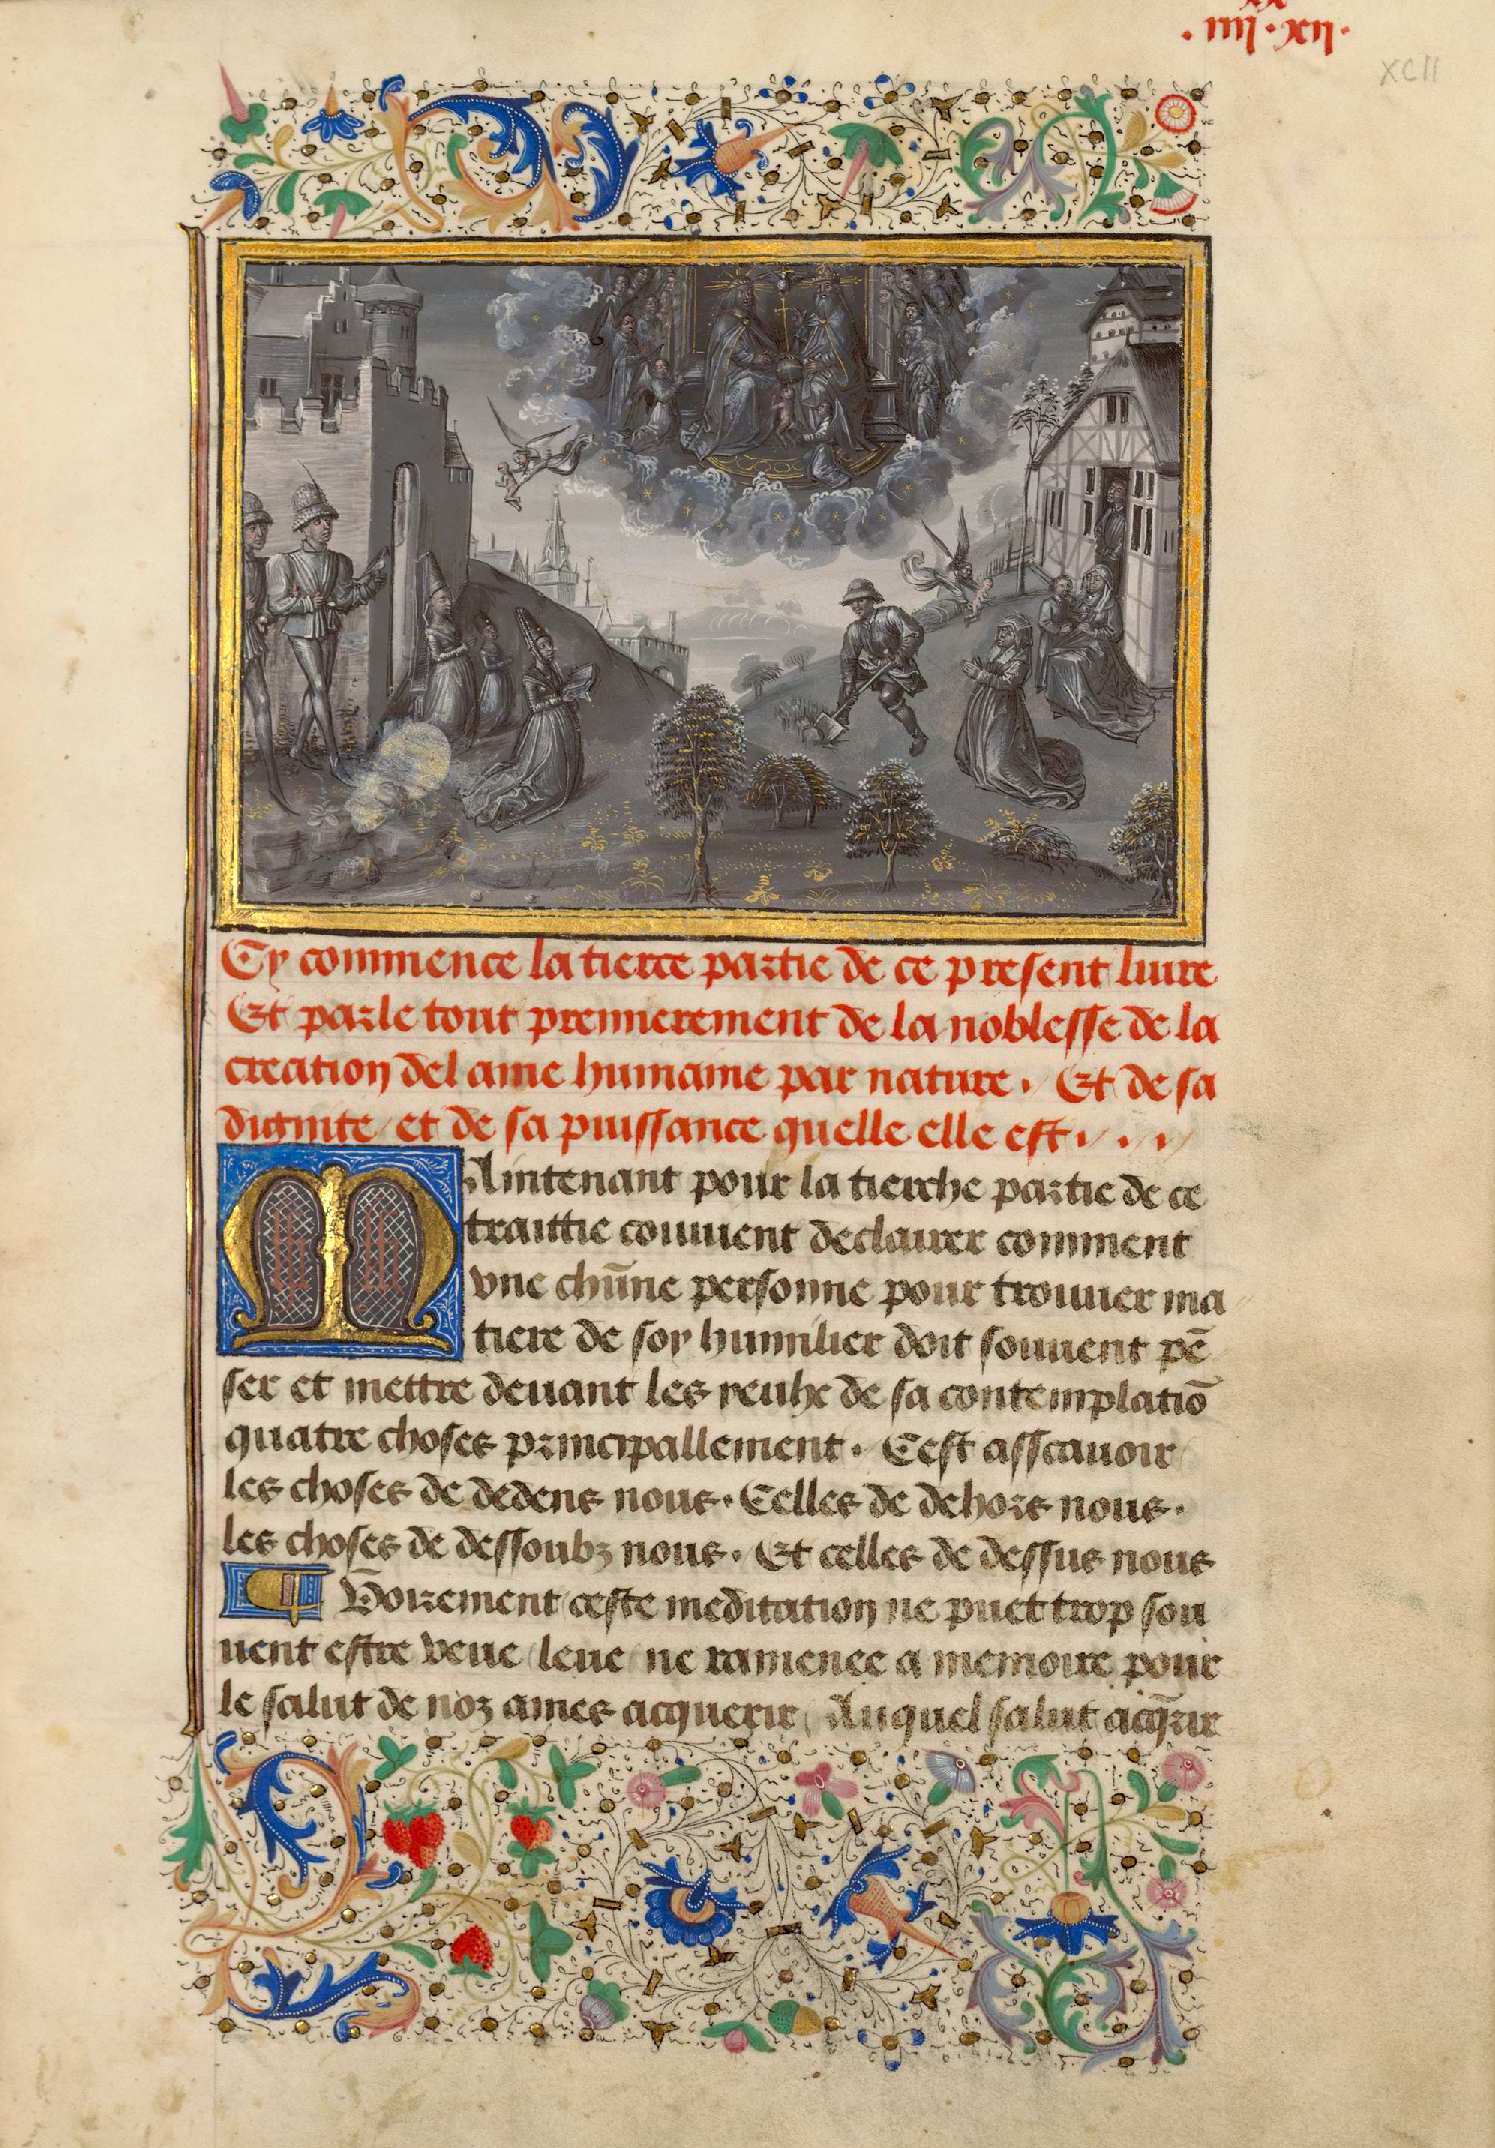 xx
.iiii.xii.
XCII
Cy commence la tierce partie de ce present liure
Et parle tout premierement de la noblesse de la
creation del ame humaine par nature. Et de sa
dignite / et de sa puissance quelle elle est . . .
MAintenant pour la tierche partie de ce
traittie couuient declairer comment
vne chũne personne pour trouuer ma
tiere de soy humilier doit souuent pē
ser et mettre deuant les yeulx de sa contemplatiō
quatre choses principallement. Cest asscauoir
les choses de dedens nous. Celles de dehors nous.
les choses de dessoubz nous. Et celles de dessus nous
Voirement ceste meditation ne puet trop sou
uent estre veue / leue / ne ramenee a memoire pour
le salut de noz ames acquerir / Auquel salut acq̄rir